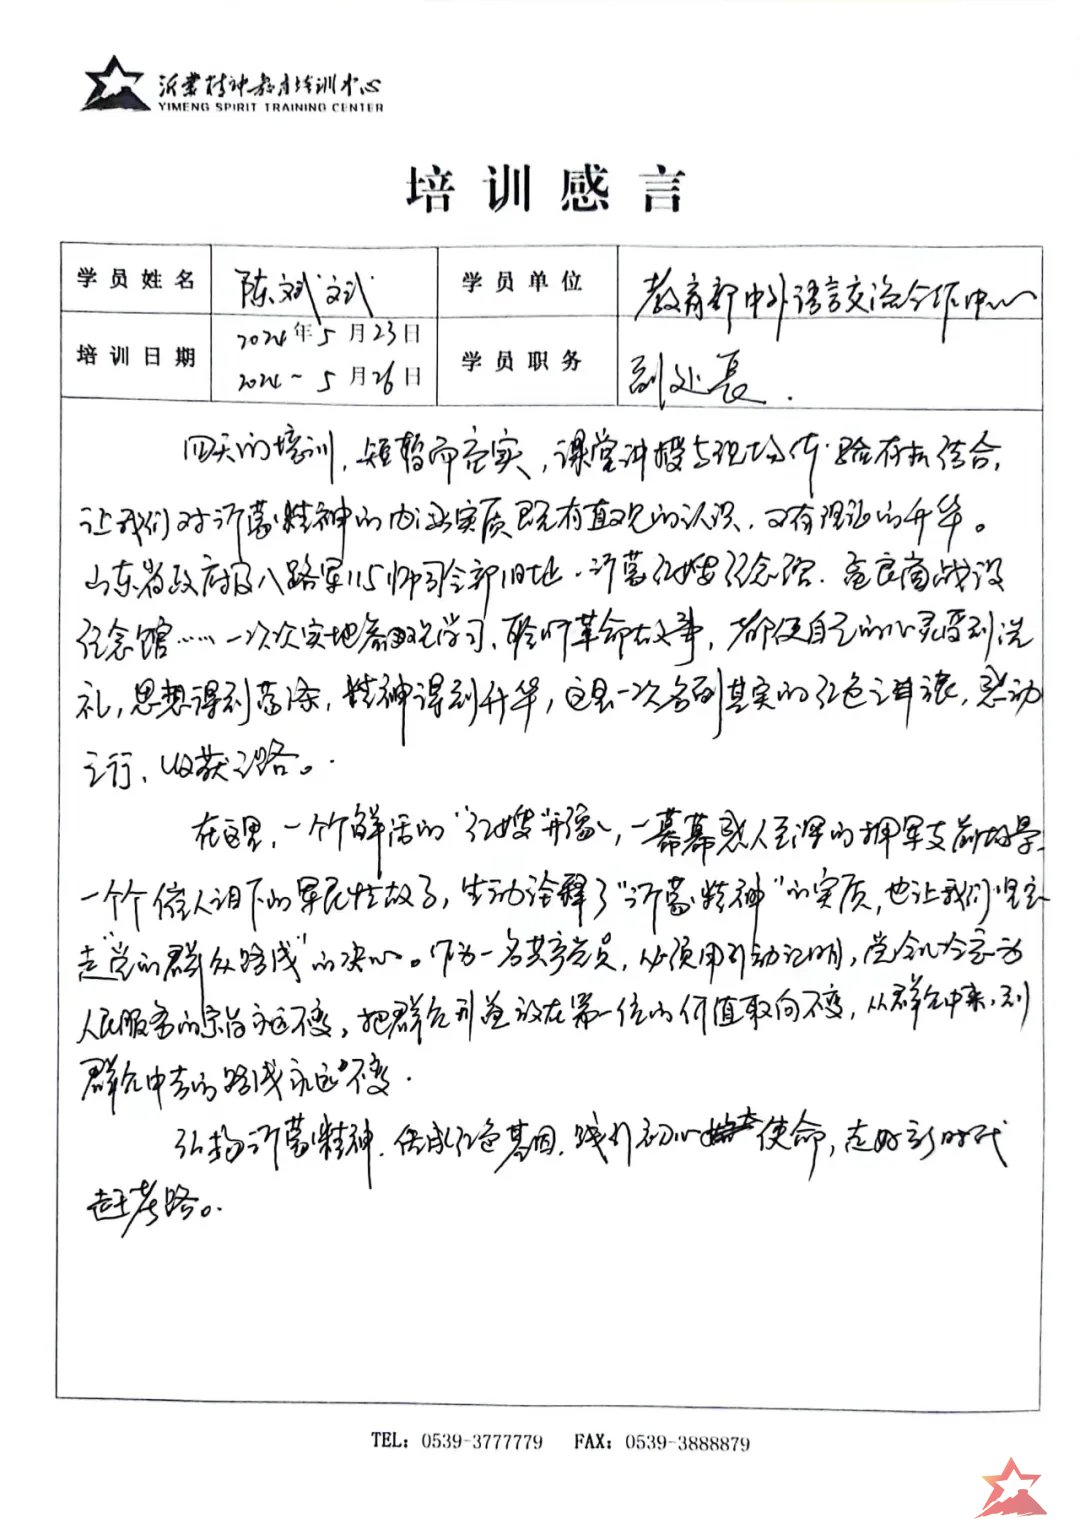 沂蒙精神教育培训中心
YIMENG SPIRIT TRAINING CENTER
培训感言
学员姓名 陈斌斌 学员单位 教育部中外语言交流合作中心
培训日期 2024年5月23日
2024~5月26日 学员职务 副处长.
四天的培训,短暂而充实,课堂讲授与现场体验有机结合,
让我们对沂蒙精神的内涵实质既有直观的认识,又有理论的升华。
山东省政府及八路军115师司令部旧址、沂蒙红嫂纪念馆、孟良崮战役
纪念馆……一次次实地参观学习,聆听革命故事,都使自己的心灵得到洗
礼,思想得到荡涤,精神得到升华,这是一次名副其实的红色之旅,感动
之行、收获之路。
在这里,一个个鲜活的“红嫂”形象,一幕幕感人至深的拥军支前场景
一个个催人泪下的军民性故事,生动诠释了“沂蒙精神”的实质,也让我们坚定
走“党的群众路线”的决心。作为一名共产党员,必须用行动证明,党全心全意为
人民服务的宗旨永远不变,把群众利益放在第一位的价值取向不变,从群众中来,到
群众中去的路线永远不变.
弘扬沂蒙精神、传承红色基因、践行初心使命,走好新时代
赶考路。
TEL: 0539-3777779 FAX: 0539-3888879